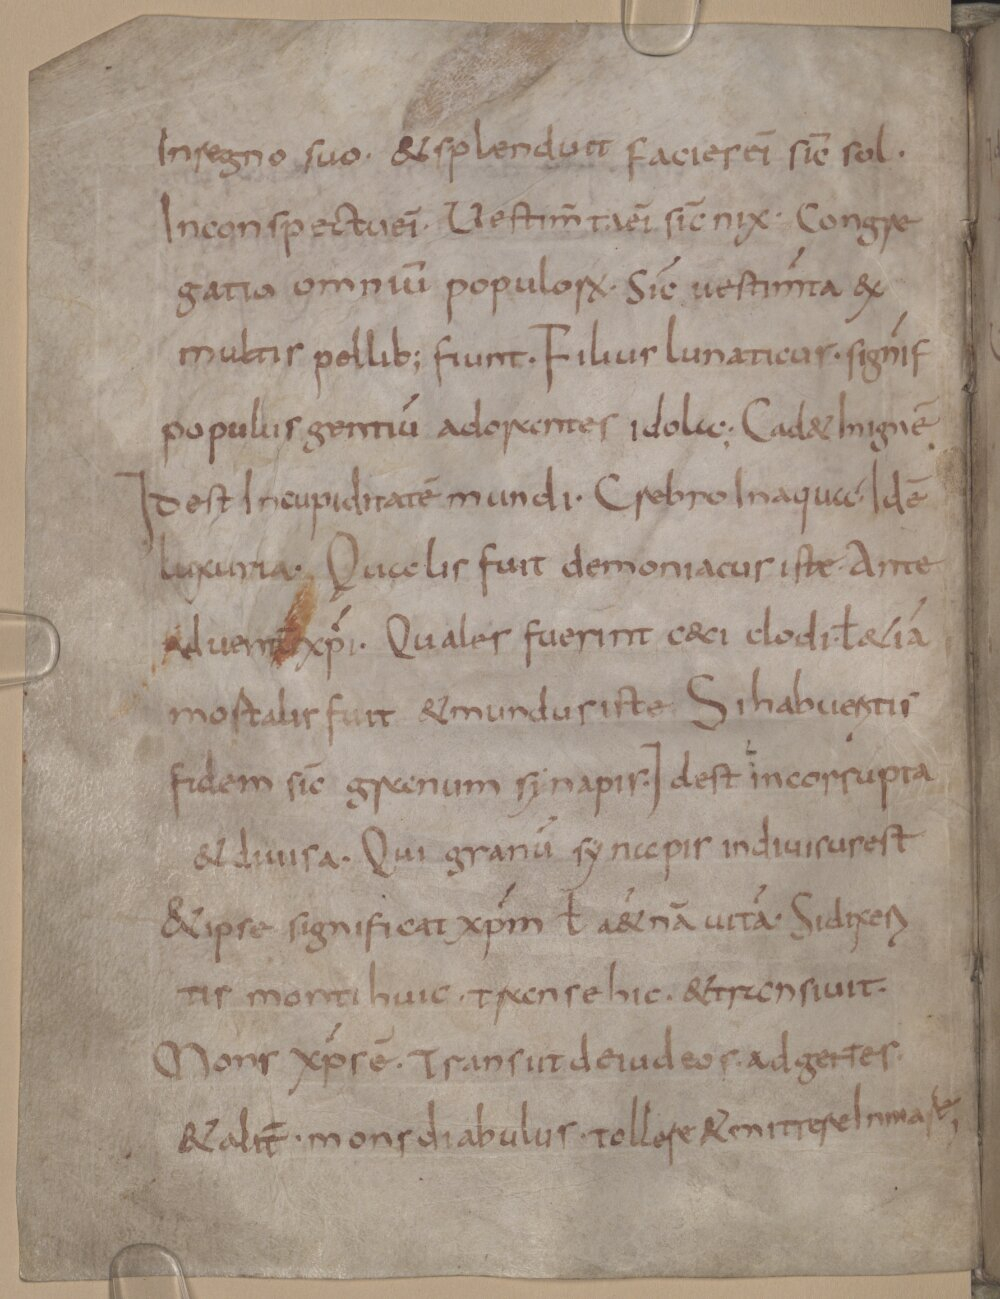 Insegno suo. & splenduit facies ei sic̄ sol.
In conspectu ei. Uestim̄ta ei sic̄ nix. Congre
gatio omniū populorꝝ. Sic̄ uestim̄ta ex
multis pellib; fiunt. Filius lunaticus. signif
populus gentiū adorantes idola; Cad& In ignē
Id est In cupiditatē mundi. Crebro In aqua. Id ē
luxuria. Qualis fuit demoniacus iste. Ante
aduent̄ xp̄i. Quales fuerint c&ci clodi. ł &iā
mortalis fuit & mundus iste Si habuer̄tis
fidem sic̄ granum synapis. Id est incorrupta
& diuisa. Qui granū synapis indiuisus est
& ipse significat xp̄m ł a&nā uitā. Si dixer̄
tis monti huic. transe hic. & transiuit.
Mons xp̄s ē. Transiit de iudeos. ad gentes.
& alit̄. mons diabulus. tollere & mittere In mare;